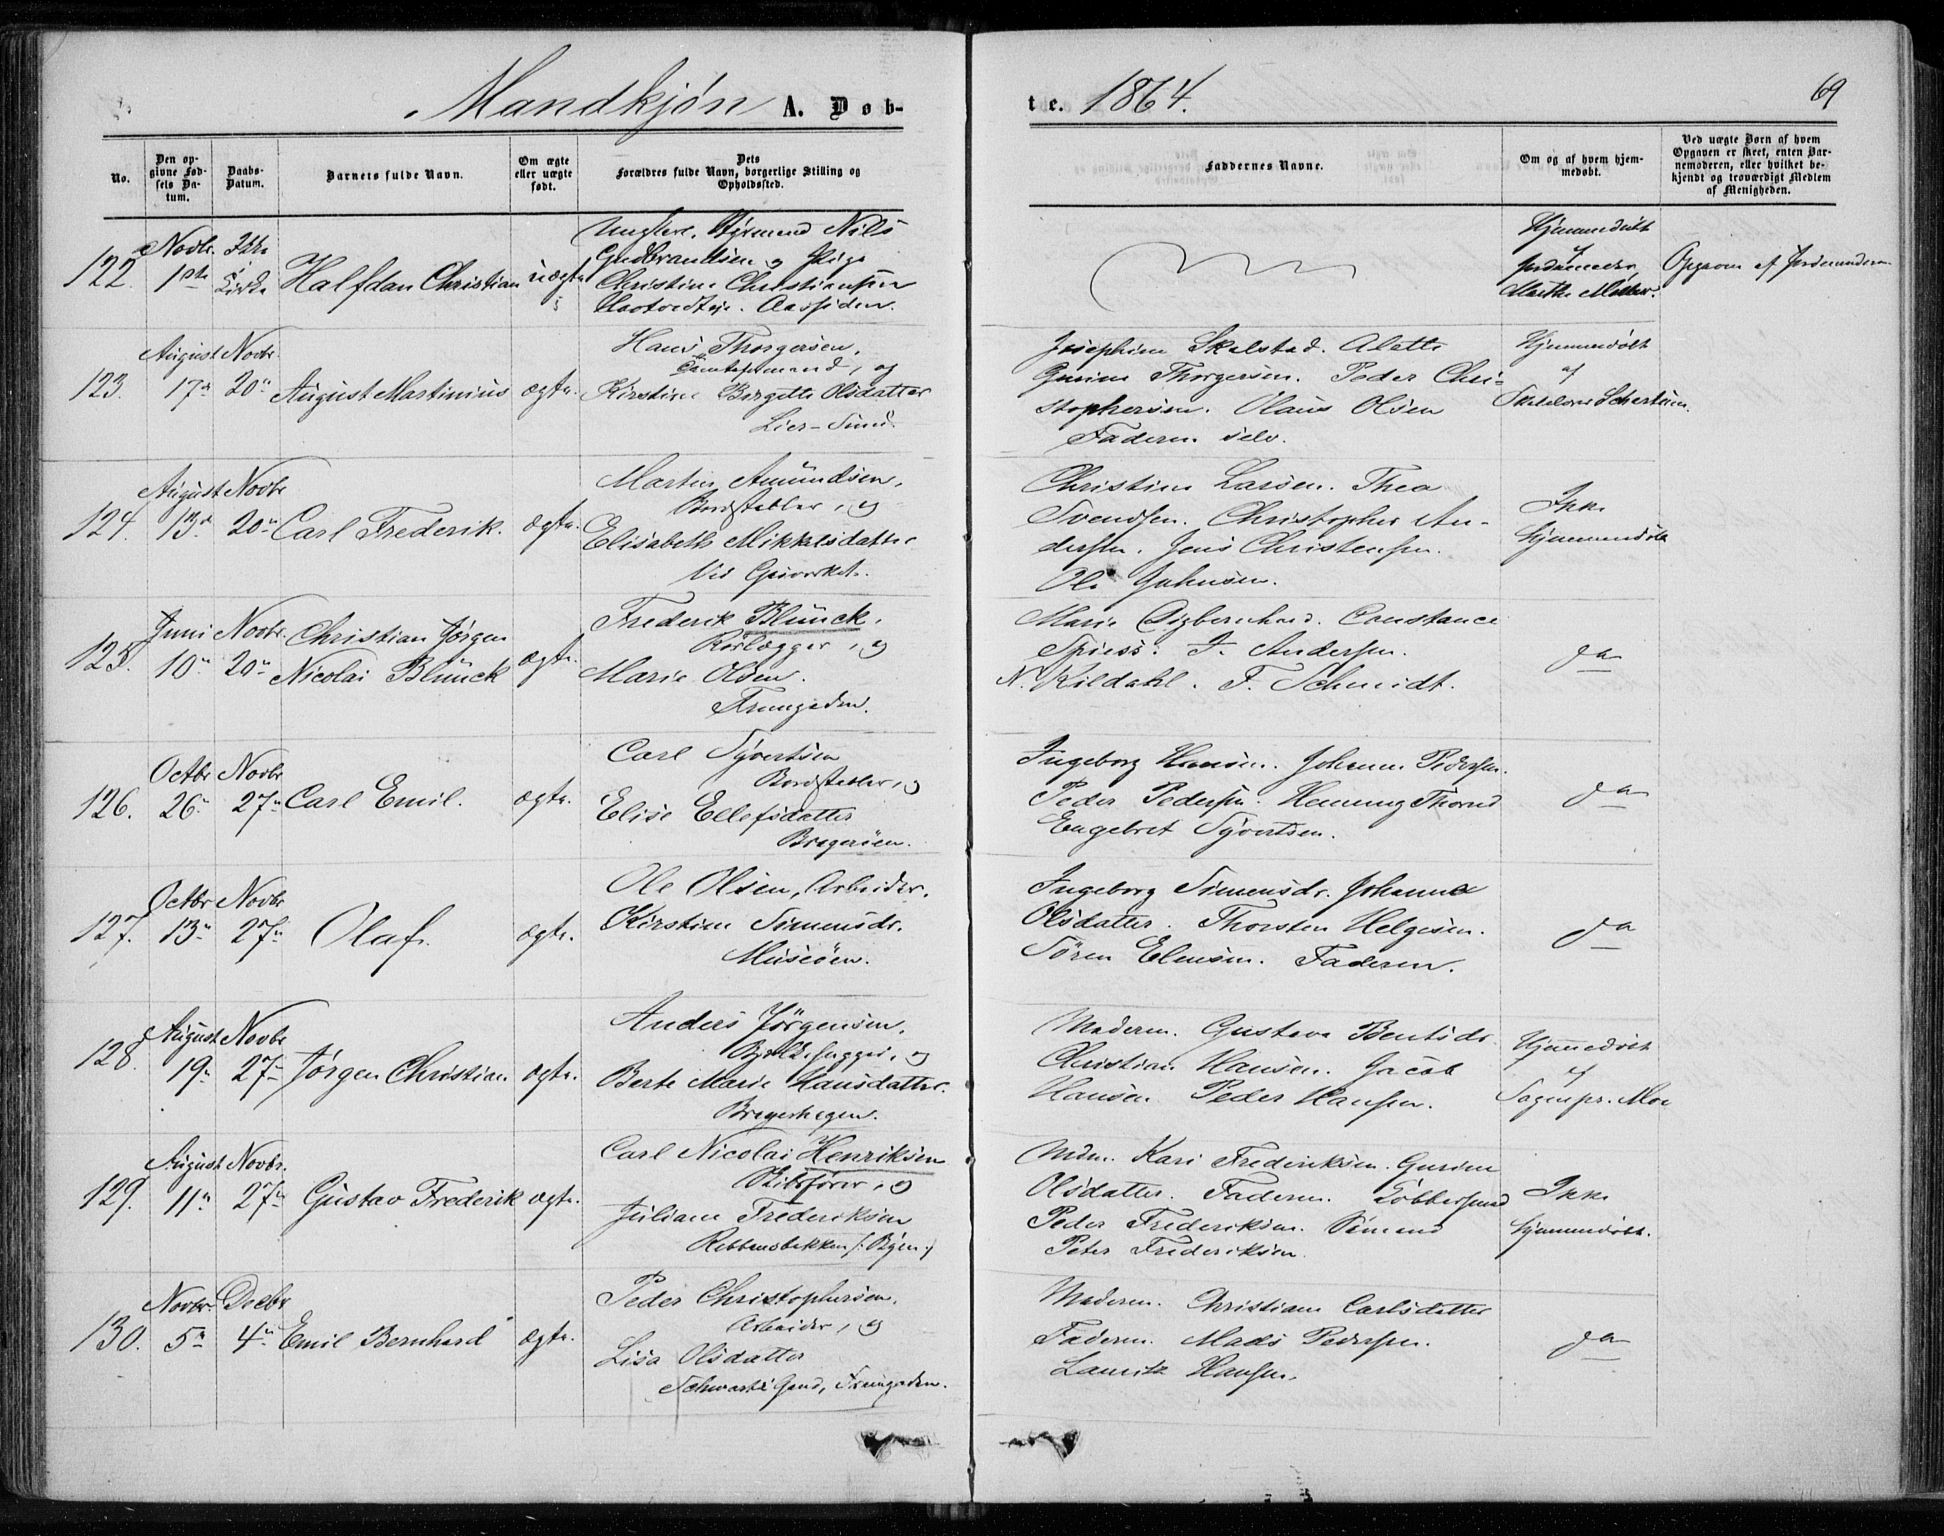 Mandkjøn A. Døb-
te. 1864.
69
No.
Den op-
givne Fød-
sels Da-
tum.
Daabs-
Datum.
Barnets fulde Navn.
Om ægte
eller uægte
født.
Forældres fulde Navn, borgerlige Stilling og
Opholdssted.
Faddernes Navne.
Om og af hvem hjem-
medøbt.
Ved uægte Børn af hvem
Opgaven er skeet, enten Bar-
nemoderen, eller hvilket be-
kjendt og troværdigt Medlem
af Menigheden.
122.
Novbr.
1ste
Ikke
i
Kirke
Halfdan Christian
uægte
Ungkarl. Nils
Gudbrandsen og Pige
Christine Christiansen
Hjemmedøbt
af
Jordmoder
Marthe
Opgaven af Jordmoderen
123.
August
17de
Novbr.
20de
August Martinius
ægte.
Hans Thorgersen,
og
Kirstine Birgitte Olsdatter
Lier-
Josephine Skalstad. Alette
Gurine Thorgersen. Peder Chri-
stophersen. Olaus Olsen
Faderen selv.
Hjemmedøbt
af
124.
August
13de
Novbr
20de
Carl Frederik.
ægte.
Martin Amundsen,
Bordstabler, og
Elisabeth Mikkelsdatter
Ved
Christine Larsen. Thea
Svendsen. Christopher An-
dersen. Jens Christensen.
Ole Johnsen.
Ikke
hjemmedøbt
125.
Juni
10de
Novbr.
20de
Christian Jørgen
Nicolai Blunck
ægte.
Frederik Blunck,
Rørlægger, og
Marie Olsen.
Strømgaden.
Marie Constance
Spiess. J. Andersen.
N. Kildahl. F. Schmidt.
do
126.
Octbr
26de
Novbr
27de
Carl Emil.
ægte.
Carl Syvertsen
Bordstabler, og
Elise Ellefsdatter
Bragerøen.
Ingeborg Hansen. Johanne Pedersen.
Peder Pedersen. Henning Thorud
Engebret Syvertsen.
do
127.
Octbr
13de
Novbr
27de
Olaf.
ægte.
Ole Olsen, Arbeider.
Kirstine Simensdr.
Museøen.
Ingeborg Simensdr. Johanne
Olsdatter. Thorsten Helgesen.
Søren Faderen.
do
128.
August
19de
Novbr
27de
Jørgen Christian
ægte.
Anders Jørgensen,
og
Berte Marie Hansdatter.
Bragerhagen.
Moderen. Gustava Bentsdr.
Christian Hansen. Jacob
Hansen. Peder Hansen.
Hjemmedøbt
af
Sognepr. Moe
129.
August
11te
Novbr.
27de
Gustav Frederik
ægte.
Carl Nicolai Henriksen
Skibsfører, og
Juliane Frederiksen
Møm. Kari Frederiksen. Gurine
Olsdatter. Faderen.
Peder Frederiksen. Sømand
Peter Frederiksen.
Ikke
hjemmedøbt.
130.
Novbr.
5te
Decbr
4de
Emil Bernhard
ægte.
Peder Christophersen,
Arbeider, og
Lisa Olsdatter
Schwartz Gaard, Strømgaden.
Moderen. Christiane Carlsdatter
Faderen. Mads Pedersen.
Lauritz Hansen.
do